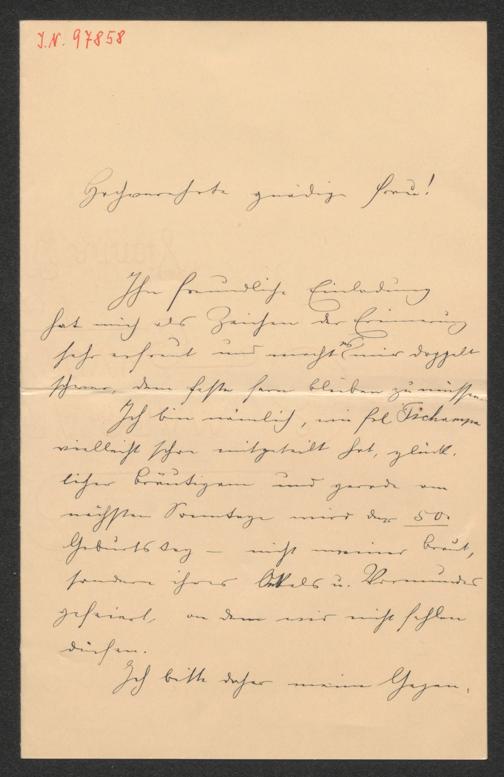 I.N. 97858
Hochverehrte gnädige Frau!
Ihre freundliche Einladung
hat mich als Zeichen der Erinnerung
sehr erfreut und macht es mir doppelt
schwer, dem Feste fern bleiben zu müssen.
Ich bin nämlich, wie Frl. Tschampa
vielleicht schon mitgeteilt hat, glück-
licher Bräutigam und gerade am
nächsten Sonntage wird der 50.
Geburtstag – nicht meiner Braut,
sondern ihres Onkels u. Vormundes
gefeiert, an dem wir nicht fehlen
dürfen.
Ich bitte daher meine Gegen-